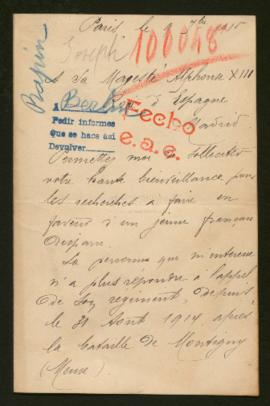 Paris, le 9 7bre 1915
Joseph 100048
Rapin
A Sa Majesté Alphonse XIII
d'Espagne
A Berlin
Fecho
Madrid
Pedir informes
Que se hace así
e.a.c.
Devolver
Permettez moi de solliciter
votre haute bienveillance pour
les recherches à faire en
faveur d'un jeune français
disparu.
La personne qui m'intéresse
n'a plus répondu à l'appel
de son régiment, depuis
le 31 Août 1914 après
la bataille de Montigny
(Meuse).